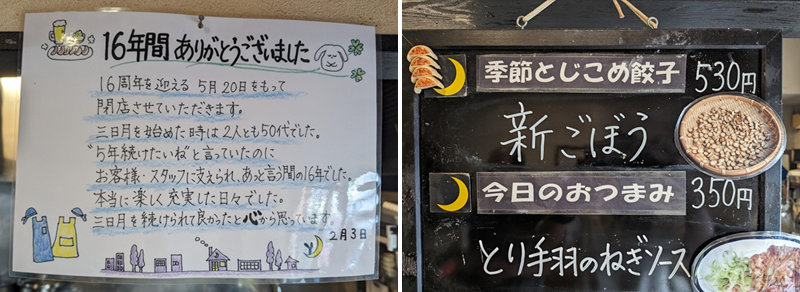 16年間 ありがとうございました
16周年を迎える 5月20日をもって
閉店させていただきます。
三日月を始めた時は2人とも50代でした。
"5年続けたいね"と言っていたのに
お客様・スタッフに支えられ、あっと言う間の16年でした。
本当に楽しく充実した日々でした。
三日月を続けられて良かったと心から思っています。
2月3日
季節とじこめ餃子 530円
新ごぼう
今日のおつまみ 350円
とり手羽のねぎソース